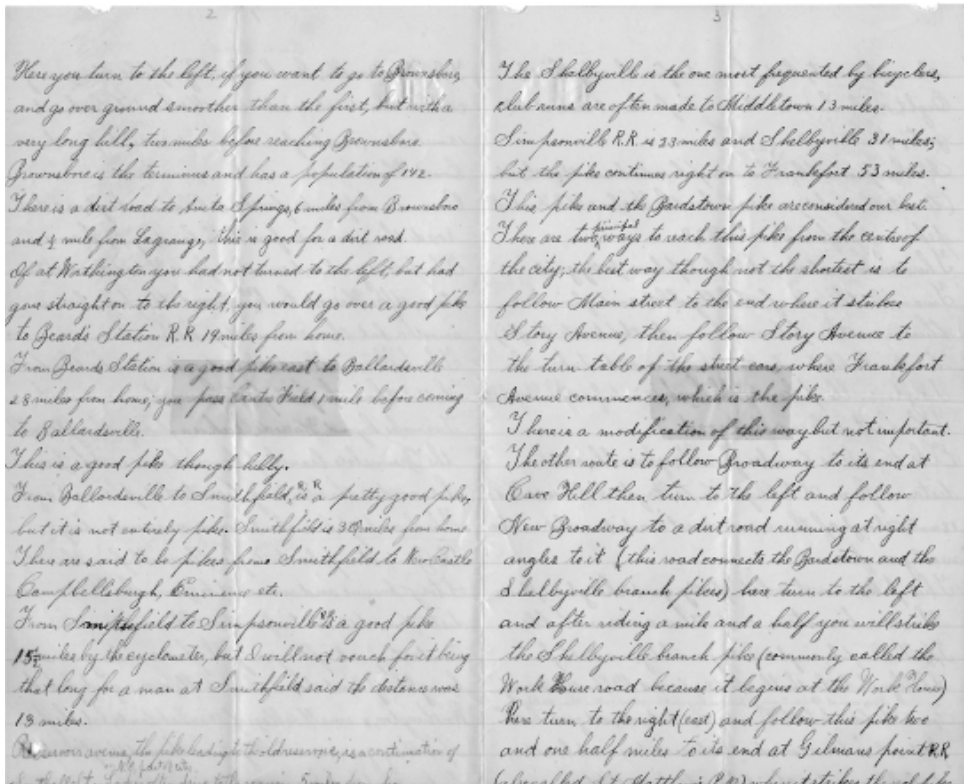 2
Here you turn to the left, if you want to go to Brownsboro,
and go over ground smoother than the first, but with a
very long hill, two miles before reaching Brownsboro.
Brownsboro is the terminus and has a population of 142.
There is a dirt road to Anita Springs, 6 miles from Brownsboro
and ½ mile from Lagrange, this is good for a dirt road
If at Worthington you had not turned to the left, but had
gone straight on to the right, you would go over a good pike
to Beard's Station R.R 19 miles from home.
From Beards Station is a good pike east to Ballardsville
28 miles from home; you pass Centre Field 1 mile before coming
to Ballardsville.
This is a good pike though hilly.
From Ballardsville to Smithfield, R.R. is a pretty good pike,
but it is not entirely pike. Smithfield is miles from home
There are said to be pikes from Smithfield to New Castle
Campbellsburgh, Eminence etc.
From Smithfield to Simpsonville is a good pike
miles by the cyclometer, but I will not vouch for it being
that long for a man at Smithfield said the distance was
13 miles.
Reservoir avenue, the pike leading to the old reservoir, is a continuation of
3
The Shelbyville is the one most frequented by bicyclers,
club runs are often made to Middletown 13 miles.
Simpsonville R.R. is 23 miles and Shelbyville 31 miles;
but the pike continues right on to Frankfort 53 miles.
This pike and the Bardstown pike are considered our best.
There are two principal ways to reach this pike from the centre of
the city; the best way though not the shortest is to
follow Main street to the end where it strikes
Story Avenue, then follow Story Avenue to
the turn table of the street cars, where Frankfort
Avenue commences, which is the pike.
There is a modification of this way but not important.
The other route is to follow Broadway to its end at
Cave Hill then turn to the left and follow
New Broadway to a dirt road running at right
angles to it (this road connects the Bardstown and the
Shelbyville branch pikes) here turn to the left
and after riding a mile and a half you will strike
the Shelbyville branch pike (commonly called the
Work House road because it begins at the Work House)
Here turn to the right (east) and follow this pike two
and one half miles to its end at Gilmans point RR